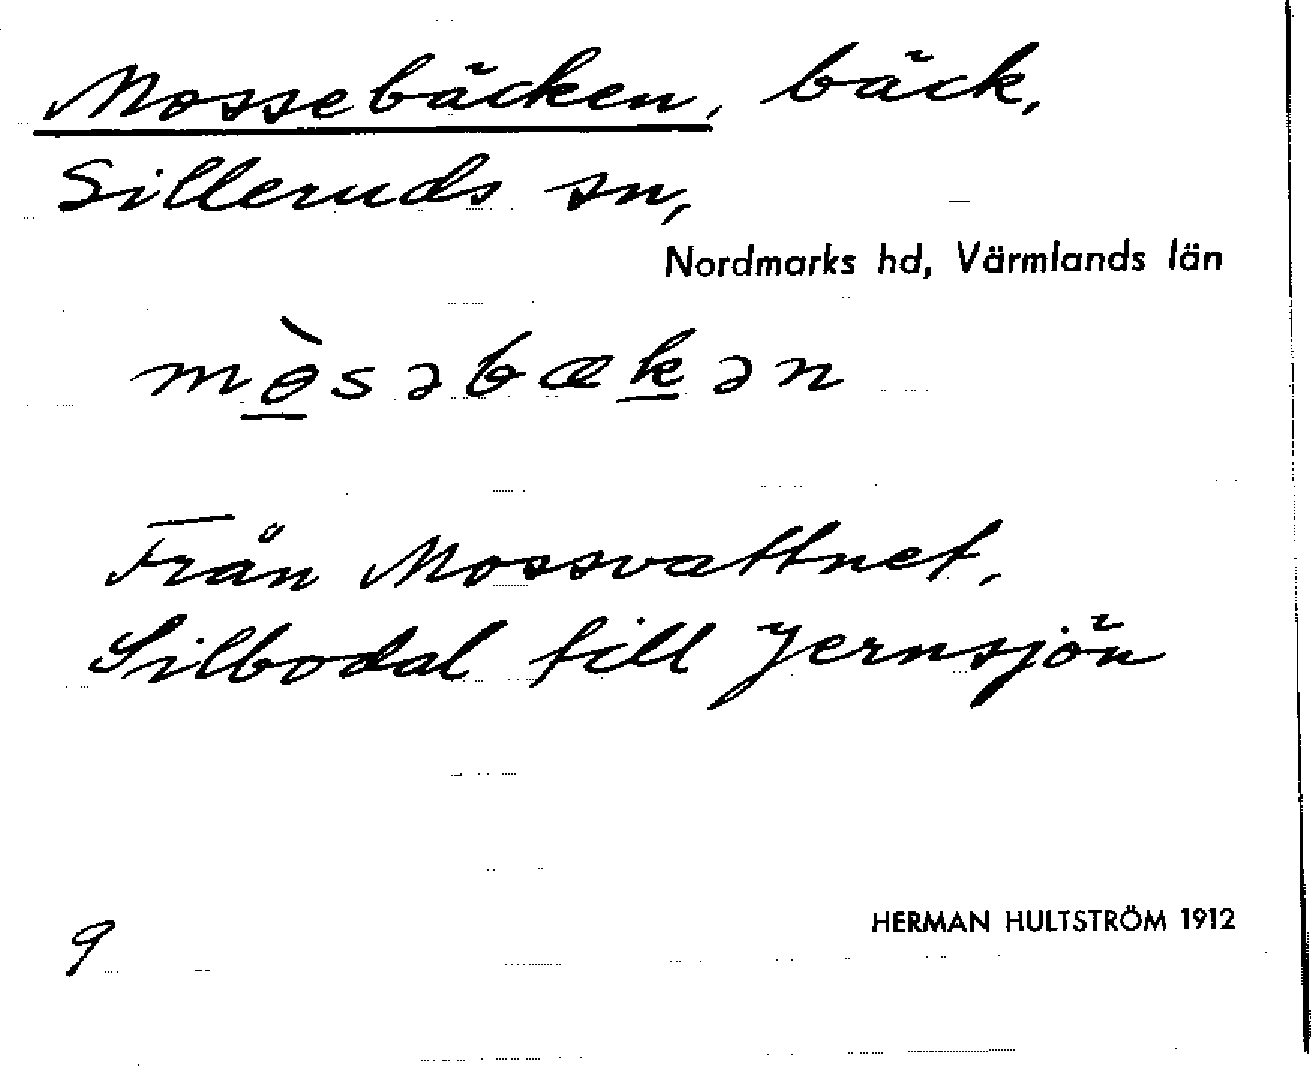 Mossebäcken, bäck,
Silleruds sn,
Nordmarks hd, Värmlands län
mɵ̠̀səbæk̠ən
Från Mossvattnet,
Silbodal till Jernsjön
HERMAN HULTSTRÖM 1912
9